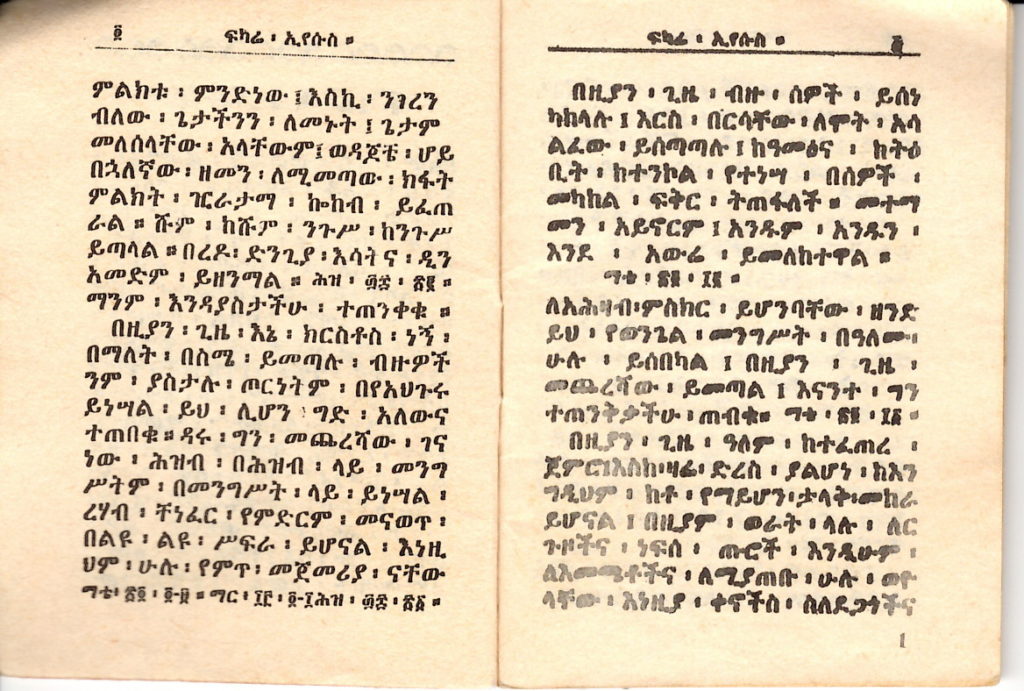 ፪ ፍካሬ ፡ ኢየሱስ ።
ምልክቱ ፡ ምንድነው ፤ እስኪ ፡ ንገረን
ብለው ፡ ጌታችንን ፡ ለመኑት ፤ ጌታም
መለሰላቸው ፡ አላቸውም፤ ወዳጆቼ ፡ ሆይ
በኋለኛው ፡ ዘመን ፡ ለሚመጣው ፡ ክፋት
ምልክት ፡ ገርራታማ ፡ ኰከብ ፡ ይፈጠ
ራል ። ሹም ፡ ከሹም ፡ ንጉሥ ፡ ከንጉሥ
ይጣላል ። በረዶ፡ ድንጊያ ፡ እሳትና ፡ ዲን
አመድም ፡ ይዘንማል ። ሕዝ ፡ ፴፰ ፡ ፳፪ ።
ማንም ፡ እንዳያስታችሁ ፡ ተጠንቀቁ ።
በዚያን ፡ ጊዜ ፡ እኔ ፡ ክርስቶስ ፡ ነኝ ፡
በማለት ፡ በስሜ ፡ ይመጣሉ ፡ ብዙዎች
ንም ፡ ያስታሉ ፡ ጦርነትም ፡ በየአህጉሩ
ይነሣል ፡ ይህ ፡ ሊሆን ፡ ግድ ፡ አለውና
ተጠበቁ ። ዳሩ ፡ ግን ፡ መጨረሻው ፡ ገና
ነው ፡ ሕዝብ ፡ በሕዝብ ፡ ላይ ፡ መንግ
ሥትም ፡ በመንግሥት ፡ ላይ ፡ ይነሣል ፡
ረሃብ ፡ ቸነፈር ፡ የምድርም ፡ መናወጥ ፡
በልዩ ፡ ልዩ ፡ ሥፍራ ፡ ይሆናል ፡ እነዚ
ህም ፡ ሁሉ ፡ የምጥ ፡ መጀመሪያ ፡ ናቸው
ማቴ፡ ፳፬ ፡ ፬-፱ ። ማር ፡ ፲፫ ፡ ፬-፲ ሕዝ ፡ ፴፰ ፡
ፍካሬ ፡ ኢየሱስ ።
በዚያን ፡ ጊዜ ፡ ብዙ ፡ ሰዎች ፡ ይሰነ
ካከላሉ ፤ እርስ ፡ በርሳቸው ፡ ለሞት ፡ አሳ
ልፈው ፡ ይሰጣጣሉ ፤ ከዓመፅና ፡ ከትዕ
ቢት ፡ ከተንኮል ፡ የተነሣ ፡ በሰዎች ፡
መካከል ፡ ፍቅር ፡ ትጠፋለች ። መተማ
መን ፡ አይኖርም ፤ አንዱም ፡ አንዱን ፡
እንደ ፡ አውሬ ፡ ይመለከተዋል ።
ማቴ ፡ ፳፬ ፡ ፲፪ ።
ለአሕዛብ፡ምስክር ፡ ይሆንባቸው ፡ ዘንድ
ይህ ፡ የወንጌል ፡ መንግሥት ፡ በዓለሙ፡
ሁሉ ፡ ይሰበካል ፤ በዚያን ፡ ጊዜ ፡
መጨረሻው ፡ ይመጣል ፤ እናንተ ፡ ግን
ተጠንቅቃችሁ ፡ ጠብቁ። ማቴ ፡ ፳፬ ፡ ፲፬ ።
በዚያን ፡ ጊዜ ፡ ዓለም ፡ ከተፈጠረ ፡
ጀምሮ፡እስከ፡ዛሬ፡ ድረስ ፡ ያልሆነ ፡ ከእን
ግዲህም ፡ ከቶ ፡ የማይሆን፡ታላቅ፡መከራ
ይሆናል ፤ በዚያም ፡ ወራት ፡ ላሉ ፡ ለር
ጉዞችና ፡ ነፍሰ ፡ ጡሮች ፡ እንዲሁም ፡
ለእመጫቶችና ፡ ለሚያጠቡ ፡ ሁሉ ፡ ወዮ
ላቸው ፡ እነዚያ ፡ ቀኖችስ ፡ ስለደጋጎችና
1